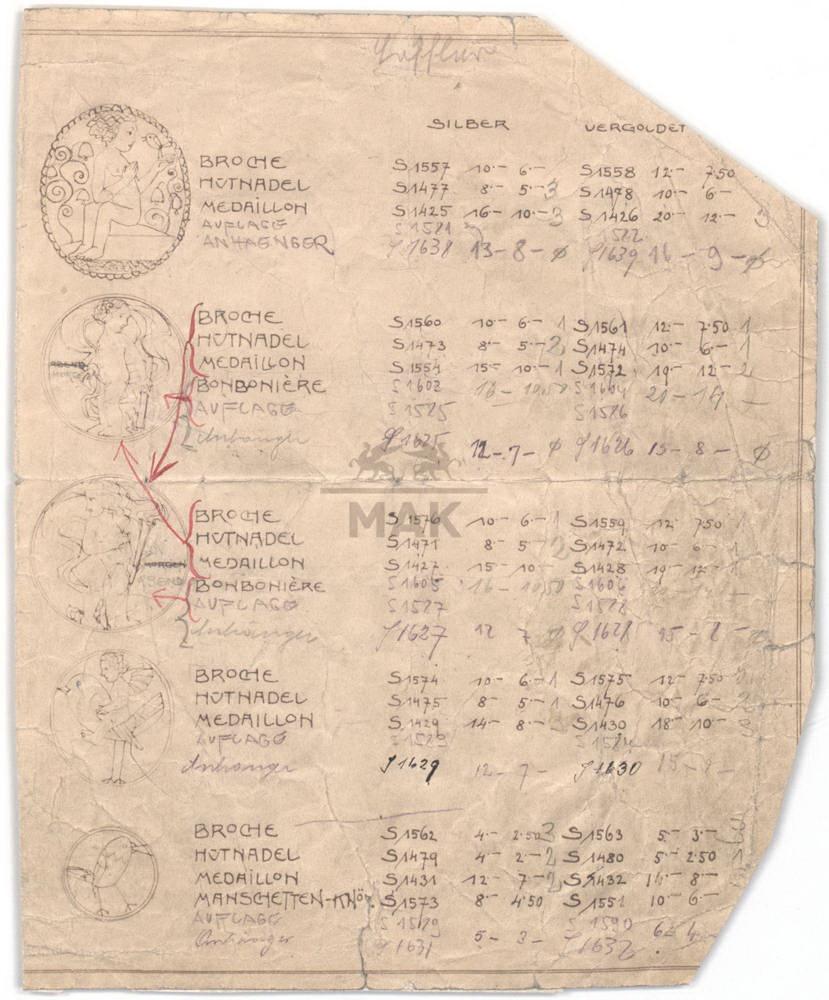 SILBER VERGOLDET
BROCHE S1557 10·– 6·– S1558 12·– 7·50
HUTNADEL S1477 8·– 5·– 3 S1478 10·– 6·–
MEDAILLON S1425 16·– 10·– 3 S1426 20·– 12·– 3
AUFLAGE S1521
ANHAENGER S1638 13–8–ø S1639 – 9 –ø
BROCHE S1560 10·– 6·– 1 S1561 12·– 7·50 1
HUTNADEL S1473 8·– 5·– 2 S1474 10·– 6·– 1
MEDAILLON S1554 15·– 10·– 1 S1572 19·– 12·– 2
BONBONIÈRE S1602 16 – 10,50 S1604 21 – 14 –
AUFLAGE S1525 S1526
Anhänger S1625 12–7– ø S1626 15–8– ø
MAK
BROCHE S1576 10·– 6·– 1 S1559 12·– 7·50 1
HUTNADEL S1471 8·– 5 2 S1472 10·– 6·– 1
MEDAILLON S1427 15·– 10·– S1428 19·– 12·– 1
BONBONIÈRE S1605 16 – 10,50 S1606
AUFLAGE S1527 S1528
Anhänger S1627 12 7 ø S1628 15 – 8 –
BROCHE S1574 10·– 6·– 1 S1575 12·– 7·50
HUTNADEL S1475 8·– 5·– 1 S1476 10·– 6·–
MEDAILLON S1429 14·– 8·– 3 S1430 18·– 10·– 3
AUFLAGE S1523 S1524
Anhänger S1629 12–7– S1630 15–9–
BROCHE S1562 4·– 2·50 3 S1563 5·– 3·–
HUTNADEL S1479 4·– 2·– 2 S1480 5·– 2·50 1
MEDAILLON S1431 12·– 7·– 2 S1432 8·–
MANSCHETTEN-KNÖ. S1573 8·– 4·50 S1551 10·– 6·–
AUFLAGE S1529 S1590
Anhänger S1631 5– 3– S1632 6– 4–